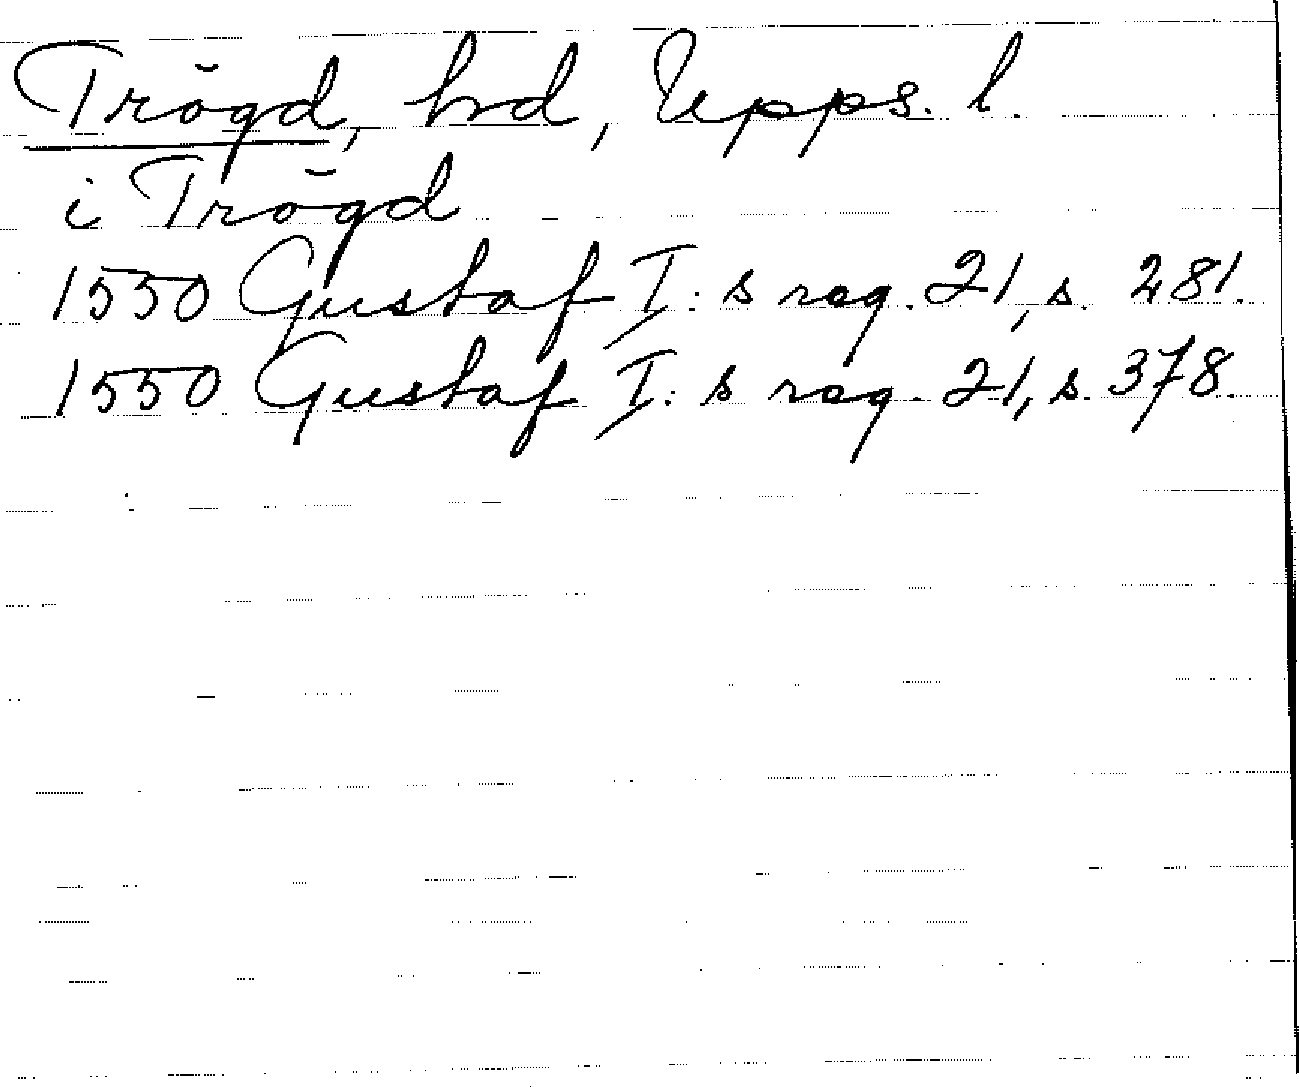 Trögd, hd, Upps. l.
i Trögd
1550 Gustaf I:s reg. 21, s. 281.
1550 Gustaf I:s reg. 21, s. 378.